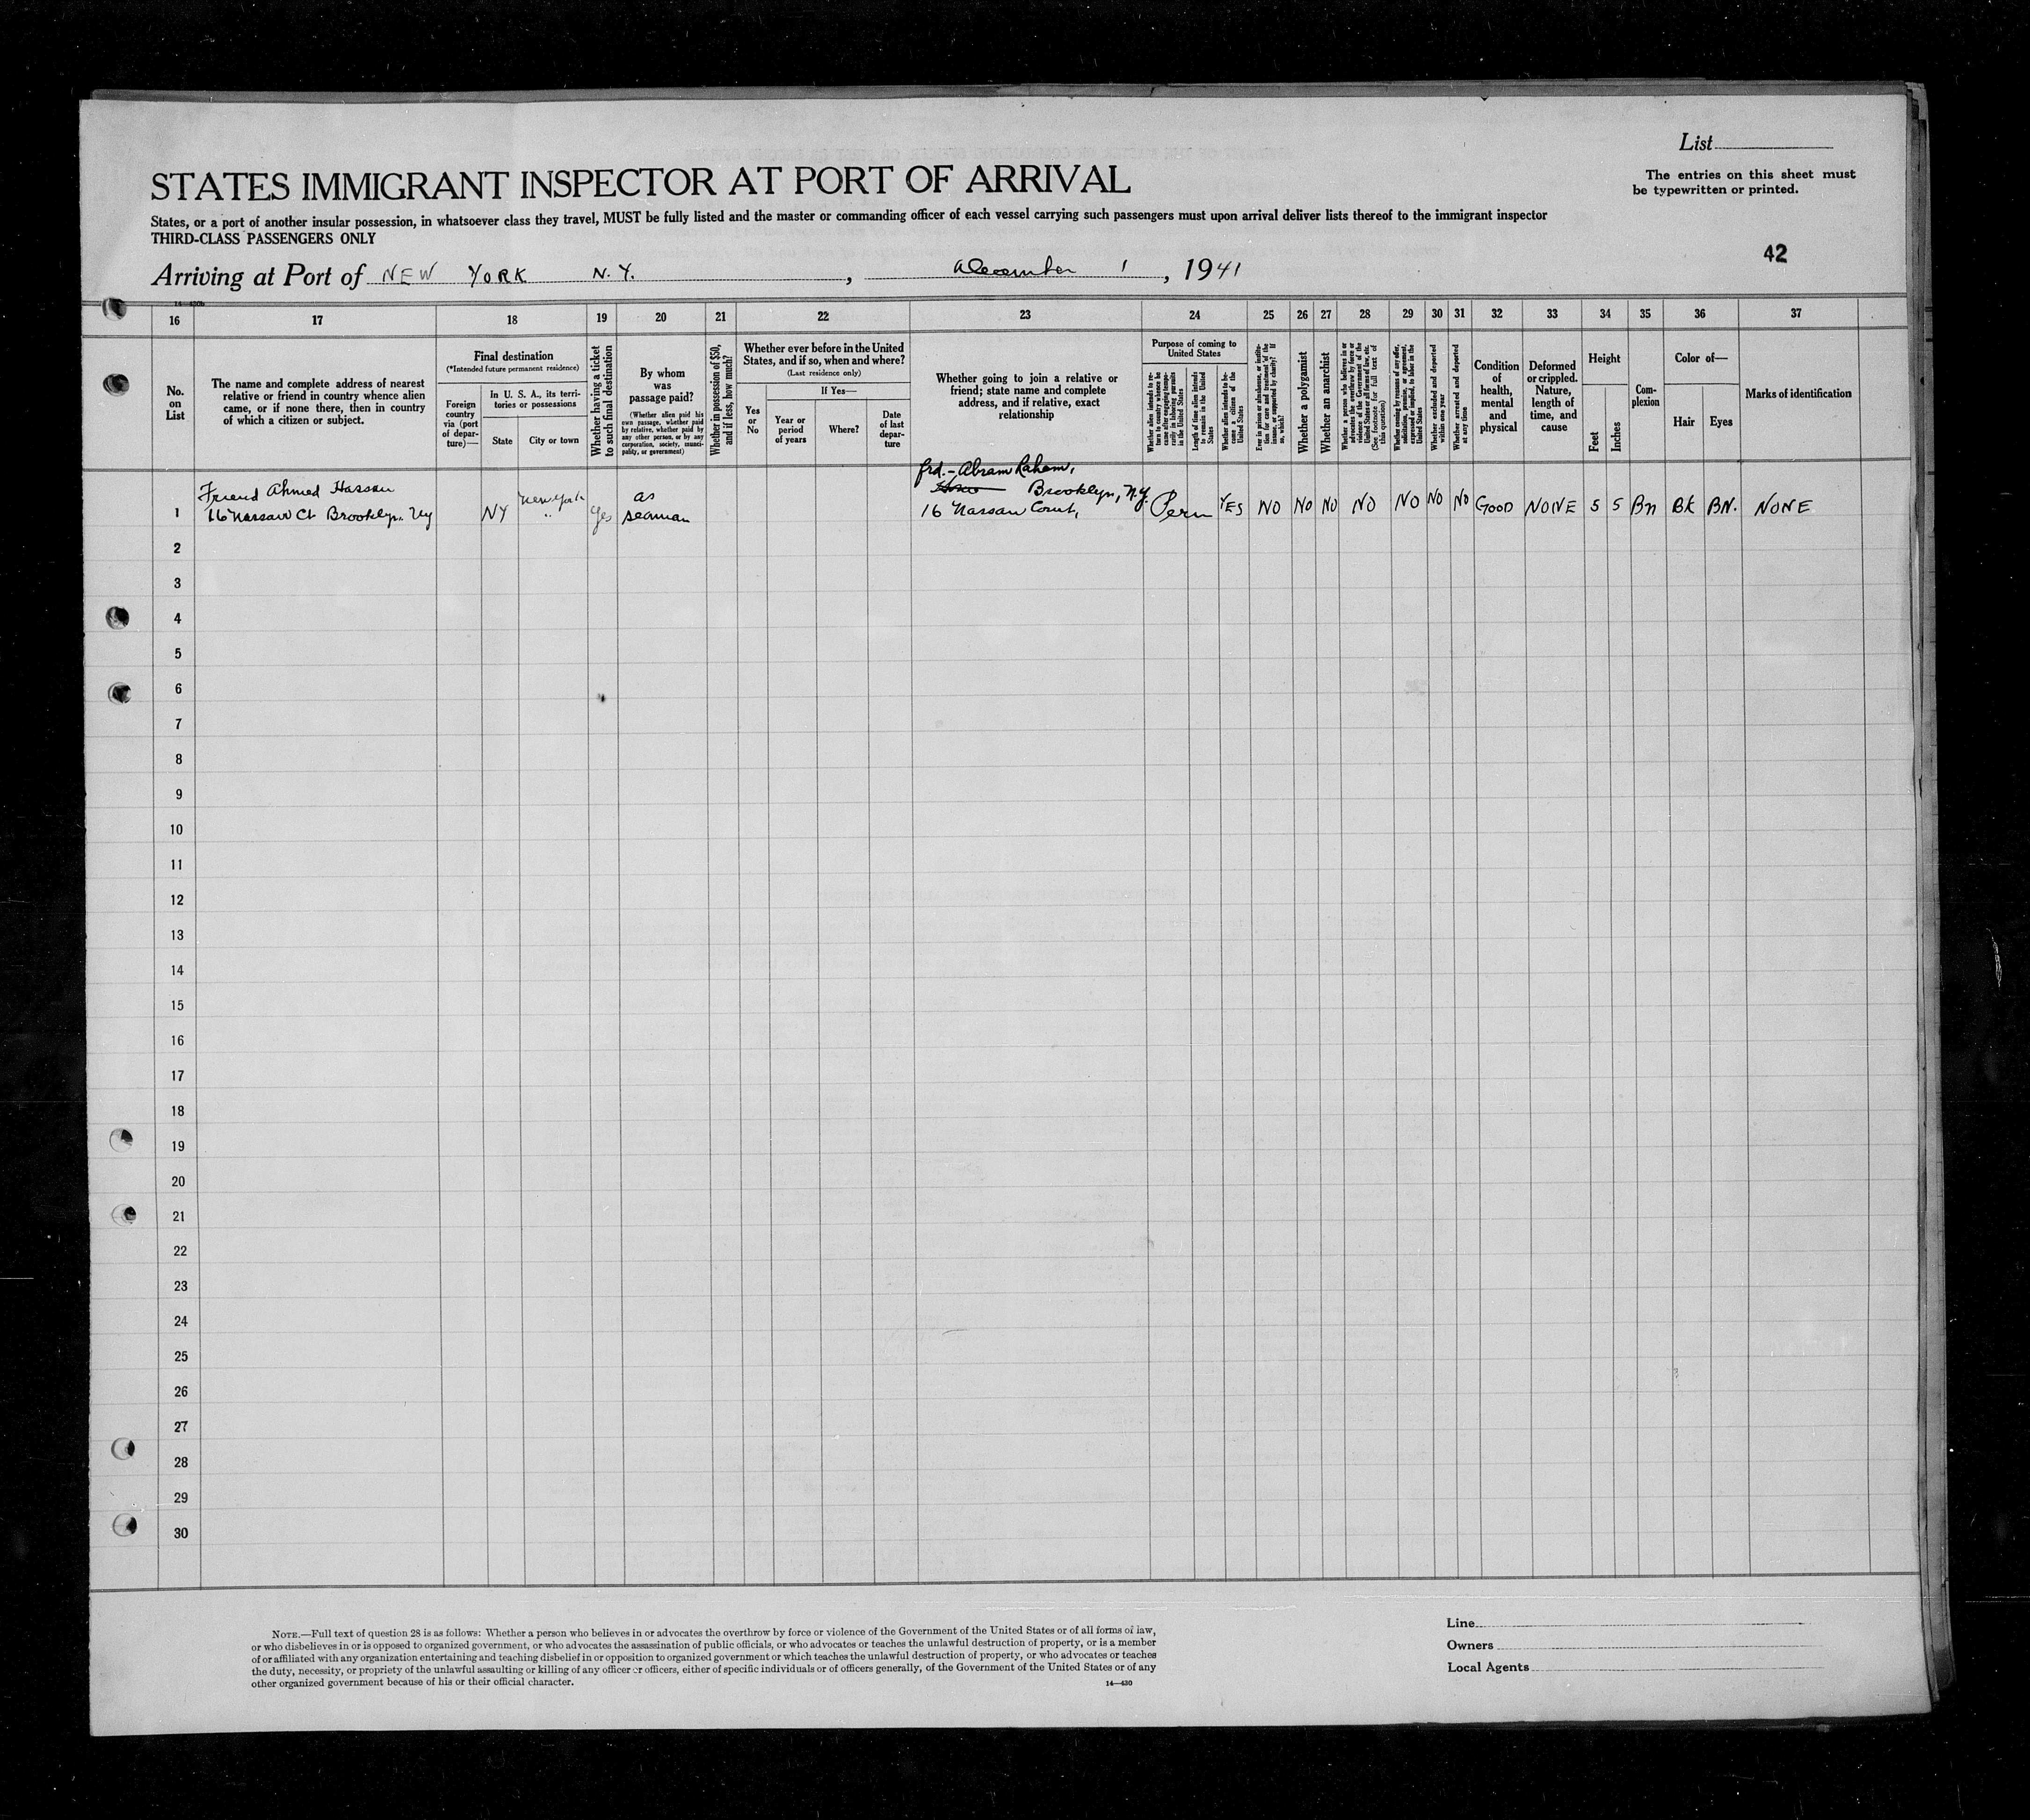 List
The entries on this sheet must
be typewritten or printed.
STATES IMMIGRANT INSPECTOR AT PORT OF ARRIVAL
States, or a port of another insular possession, in whatsoever class they travel, MUST be fully listed and the master or commanding officer of each vessel carrying such passengers must upon arrival deliver lists thereof to the immigrant inspector
THIRD-CLASS PASSENGERS ONLY
42
Arriving at Port of NEW YORK N.Y. , December 1 , 1941
14—430b
16 17 18 19 20 21 22 23 24 25 26 27 28 29 30 31 32 33 34 35 36 37
No.
on
List
The name and complete address of nearest
relative or friend in country whence alien
came, or if none there, then in country
of which a citizen or subject.
Final destination
(*Intended future permanent residence)
Foreign
country
via (port
of depar-
ture)—
In U. S. A., its terri-
tories or possessions
State
City or town
Whether having a ticket
to such final destination
By whom
was
passage paid?
(Whether alien paid his
own passage, whether paid
by relative, whether paid by
any other person, or by any
corporation, society, munici-
pality, or government)
Whether in possession of $50,
and if less, how much?
Whether ever before in the United
States, and if so, when and where?
(Last residence only)
Yes
or
No
If Yes—
Year or
period
of years
Where?
Date
of last
depar-
ture
Whether going to join a relative or
friend; state name and complete
address, and if relative, exact
relationship
Purpose of coming to
United States
Whether alien intends to re-
turn to country whence he
came after engaging tempo-
rarily in laboring pursuits
in the United States
Length of time alien intends
to remain in the United
States
Whether alien intends to be-
come a citizen of the
United States
Ever in prison or almshouse, or institu-
tion for care and treatment of the
insane, or supported by charity? If
so, which?
Whether a polygamist
Whether an anarchist
Whether a person who believes in or
advocates the overthrow by force or
violence of the Government of the
United States or all forms of law, etc.
(See footnote for full text of
this question)
Whether coming by reasons of any offer,
solicitation, promise, or agreement,
expressed or implied, to labor in the
United States
Whether excluded and deported
within one year
Whether arrested and deported
at any time
Condition
of
health,
mental
and
physical
Deformed
or crippled.
Nature,
length of
time, and
cause
Height
Feet
Inches
Com-
plexion
Color of—
Hair
Eyes
Marks of identification
frd.- Abram Raham,
Brooklyn, N.Y.
16 Nassau Court,
1
Friend Ahmed Hassan
16 Nassau Ct Brooklyn. Ny
NY
New York
"
Yes
as
seaman
Perm YES NO NO NO NO NO NO NO GOOD NONE 5 5 Bn BK BN. NONE
2
3
4
5
6
7
8
9
10
11
12
13
14
15
16
17
18
19
20
21
22
23
24
25
26
27
28
29
30
NOTE.—Full text of question 28 is as follows: Whether a person who believes in or advocates the overthrow by force or violence of the Government of the United States or of all forms of law,
or who disbelieves in or is opposed to organized government, or who advocates the assassination of public officials, or who advocates or teaches the unlawful destruction of property, or is a member
of or affiliated with any organization entertaining and teaching disbelief in or opposition to organized government or which teaches the unlawful destruction of property, or who advocates or teaches
the duty, necessity, or propriety of the unlawful assaulting or killing of any officer or officers, either of specific individuals or of officers generally, of the Government of the United States or of any
other organized government because of his or their official character.
14—430
Line
Owners
Local Agents